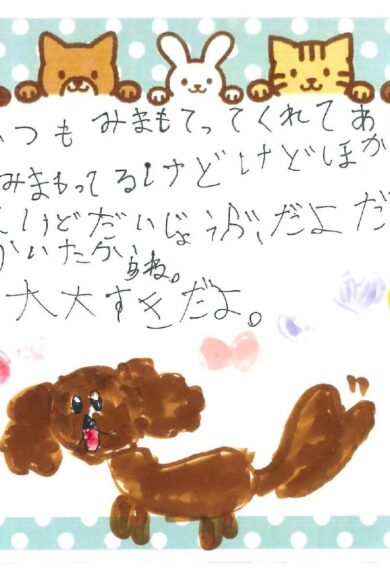 いつも みまもてってくれてあ
みまもってるけどけどほか
んけどだいじょうぶだよ だ
かいたからね。
大大すきだよ。